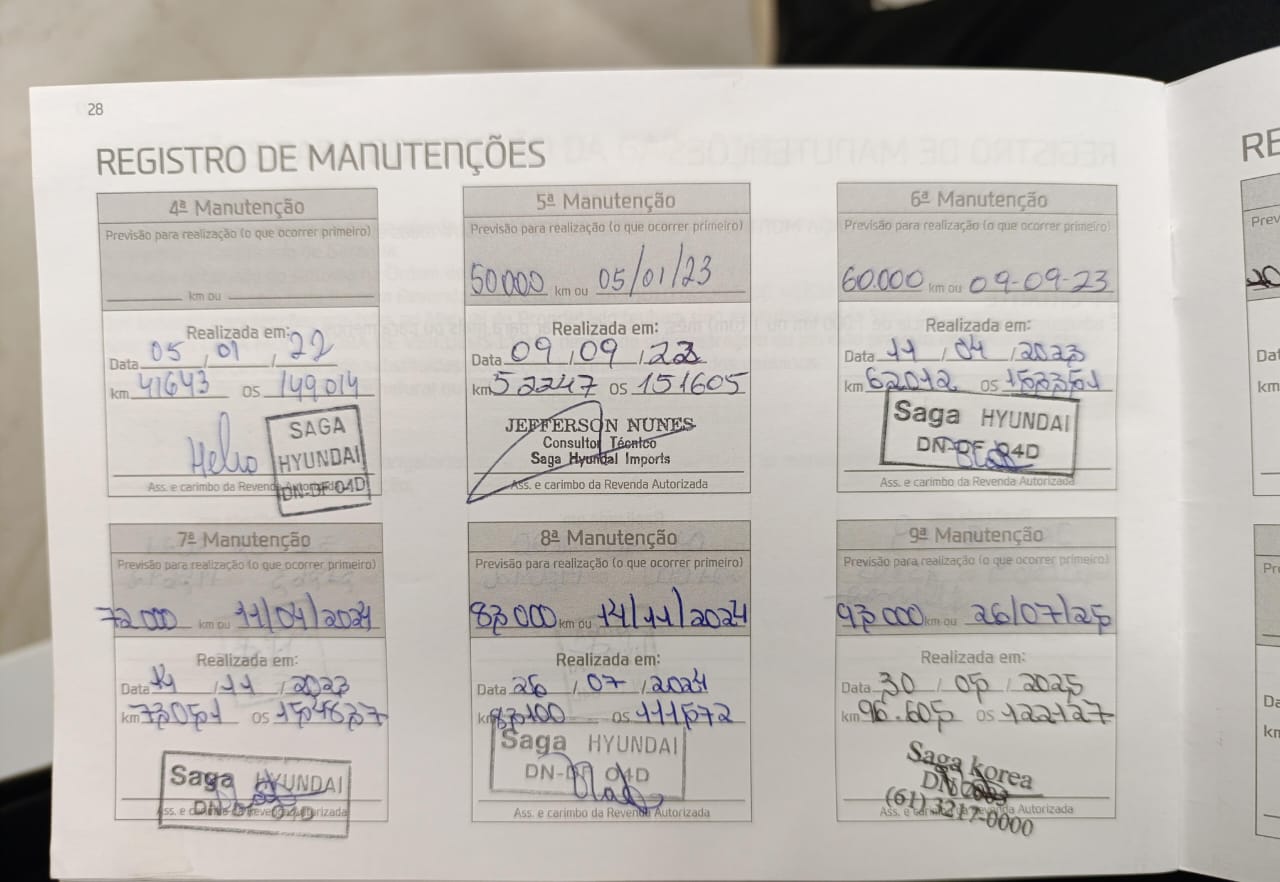 28
REGISTRO DE MANUTENÇÕES
4ª Manutenção
Previsão para realização (o que ocorrer primeiro)
km ou
Realizada em:
Data 05 / 01 / 22
km 41643 OS 149014
Helio
SAGA
HYUNDAI
DN-DF 04D
Ass. e carimbo da Revenda Autorizada
5ª Manutenção
Previsão para realização (o que ocorrer primeiro)
50000 km ou 05/01/23
Realizada em:
Data 09 / 09 / 22
km 52247 OS 151605
JEFFERSON NUNES
Consultor Técnico
Saga Hyundai Imports
Ass. e carimbo da Revenda Autorizada
6ª Manutenção
Previsão para realização (o que ocorrer primeiro)
60.000 km ou 09-09-23
Realizada em:
Data 11 / 04 / 2023
km 62012 OS 153351
Saga HYUNDAI
DN-DF 04D
Ass. e carimbo da Revenda Autorizada
7ª Manutenção
Previsão para realização (o que ocorrer primeiro)
72000 km ou 11/04/2024
Realizada em:
Data 14 / 11 / 2023
km 73051 OS 154837
Saga HYUNDAI
Ass. e carimbo da Revenda Autorizada
8ª Manutenção
Previsão para realização (o que ocorrer primeiro)
83000 km ou 14/11/2024
Realizada em:
Data 26 / 07 / 2024
km 83100 OS 111572
Saga HYUNDAI
DN-DF 04D
Ass. e carimbo da Revenda Autorizada
9ª Manutenção
Previsão para realização (o que ocorrer primeiro)
93000 km ou 26/07/25
Realizada em:
Data 30 / 05 / 2025
km 96.605 OS 122127
Saga korea
DN
(61) 3217-0000
Ass. e carimbo da Revenda Autorizada
RE